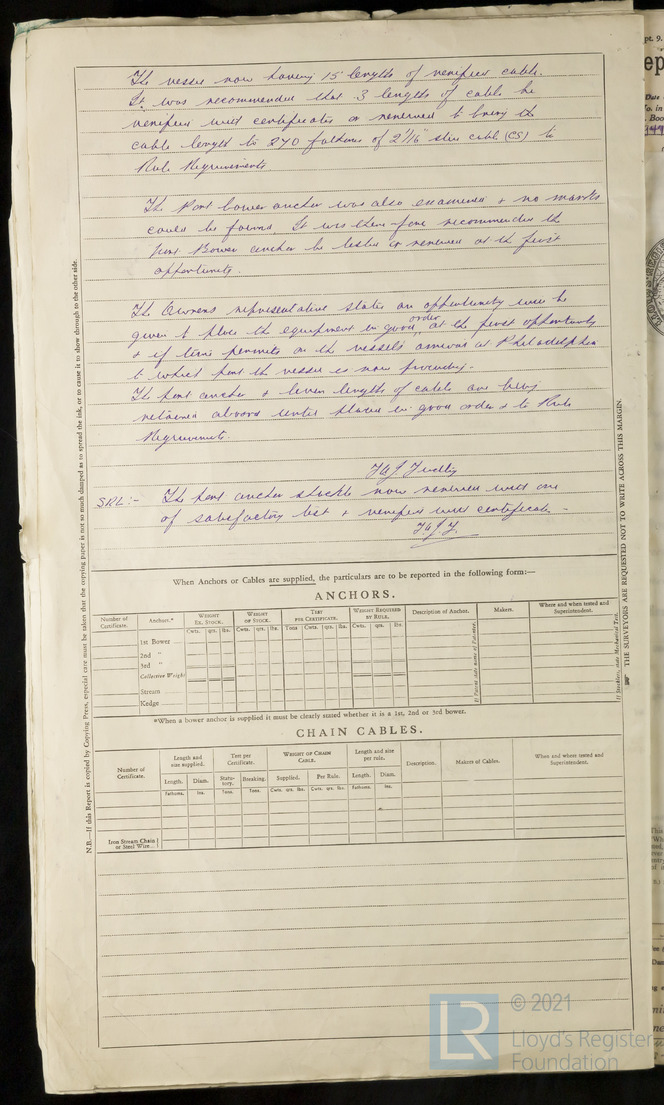 The vessel now having 15 lengths of verified cable.
It was recommended that 3 lengths of cable be
verified with certificates or renewed to bring the
cable length to 270 fathoms of 2 1/16" stud cable (CS) to
Rule Requirements
The Port bower anchor was also examined & no marks
could be found It was therefore recommended the
Port Bower anchor be tested or renewed at the first
opportunity.
The Owners representative states an opportunity will be
given to place the equipment in good order at the first opportunity
& if time permits on the vessels arrival at Philadelphia
to which port the vessel is now proceeding.
The port anchor & lengths of cable are being
retained aboard until placed in good order & to Rule
Requirements.
SRL:- The port anchor shackle now renewed with one
of satisfactory test & verified with certificate -
When Anchors or Cables are supplied, the particulars are to be reported in the following form:—
ANCHORS.
Number of Certificate. Anchors.* Weight Ex. Stock. Weight of Stock. Test per Certificate. Weight Required by Rule. Description of Anchor. Makers. Where and when tested and Superintendent.
Cwts. qrs. lbs. Cwts. qrs. lbs. Tons Cwts. qrs. lbs. Cwts. qrs. lbs.
1st Bower
2nd "
3rd "
Collective Weight
Stream
Kedge
*When a bower anchor is supplied it must be clearly stated whether it is a 1st, 2nd or 3rd bower.
CHAIN CABLES.
Number of Certificate. Length and size supplied. Test per Certificate. Weight of Chain Cable. Length and size per rule. Description. Makers of Cables. Where and when tested and Superintendent.
Length. Diam. Statutory. Breaking. Supplied. Per Rule. Length. Diam.
Fathoms. Ins. Tons. Tons. Cwts. qrs. lbs. Cwts. qrs. lbs. Fathoms. Ins.
Iron Stream Chain or Steel Wire...
N.B.—If this Report is copied by Copying Press, especial care must be taken that the copying paper is not so much damped as to spread the ink, or to cause it to show through to the other side.
THE SURVEYORS ARE REQUESTED NOT TO WRITE ACROSS THIS MARGIN.
LR
© 2021
Lloyd's Register
Foundation